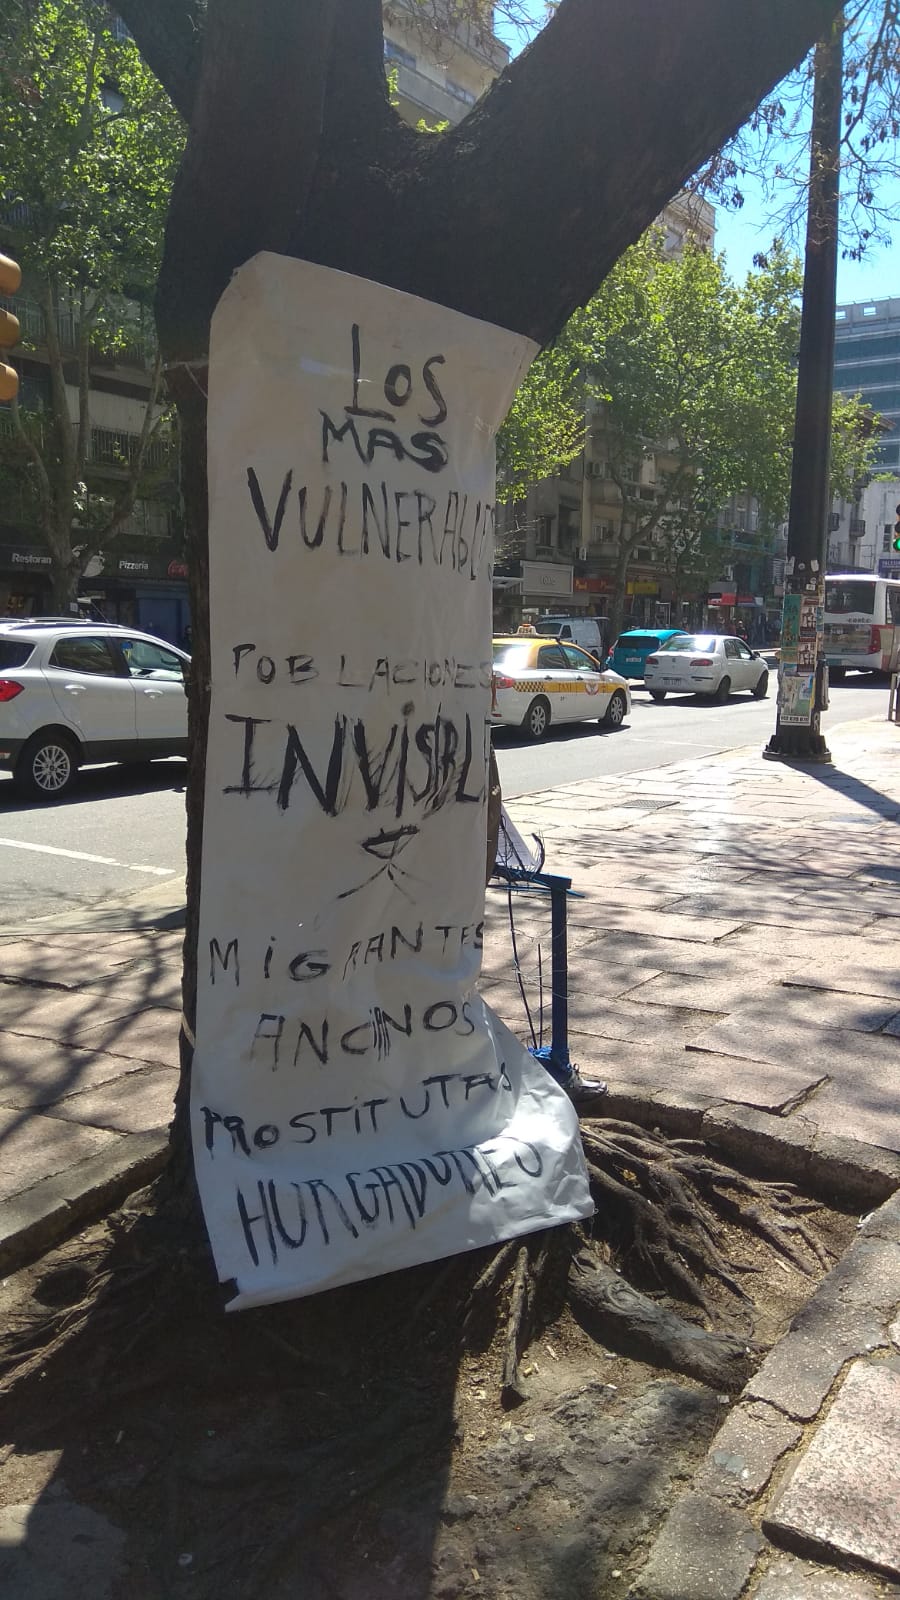 LOS
MAS
VULNERABLES
POBLACIONES
INVISIBL
MIGRANTES
ANCINOS
PROSTITUTAS
Restoran
Pizzería
TAXI